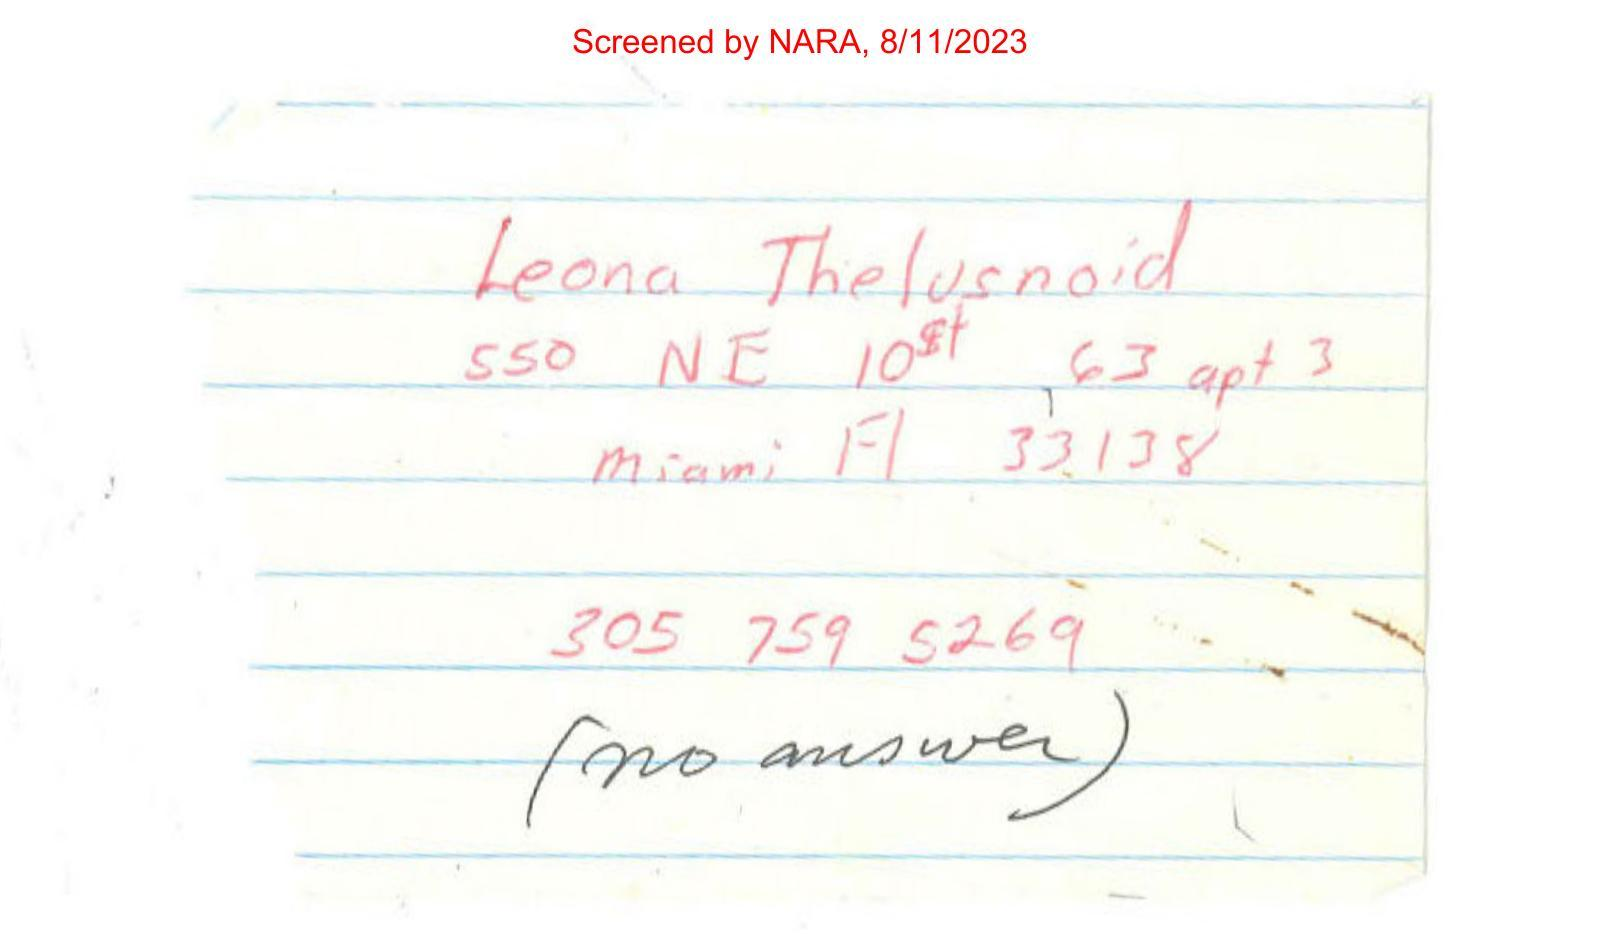 Screened by NARA, 8/11/2023
Leona Thelusnoid
550 NE 10st 63 apt 3
Miami Fl 33138
305 759 5269
(no answer)